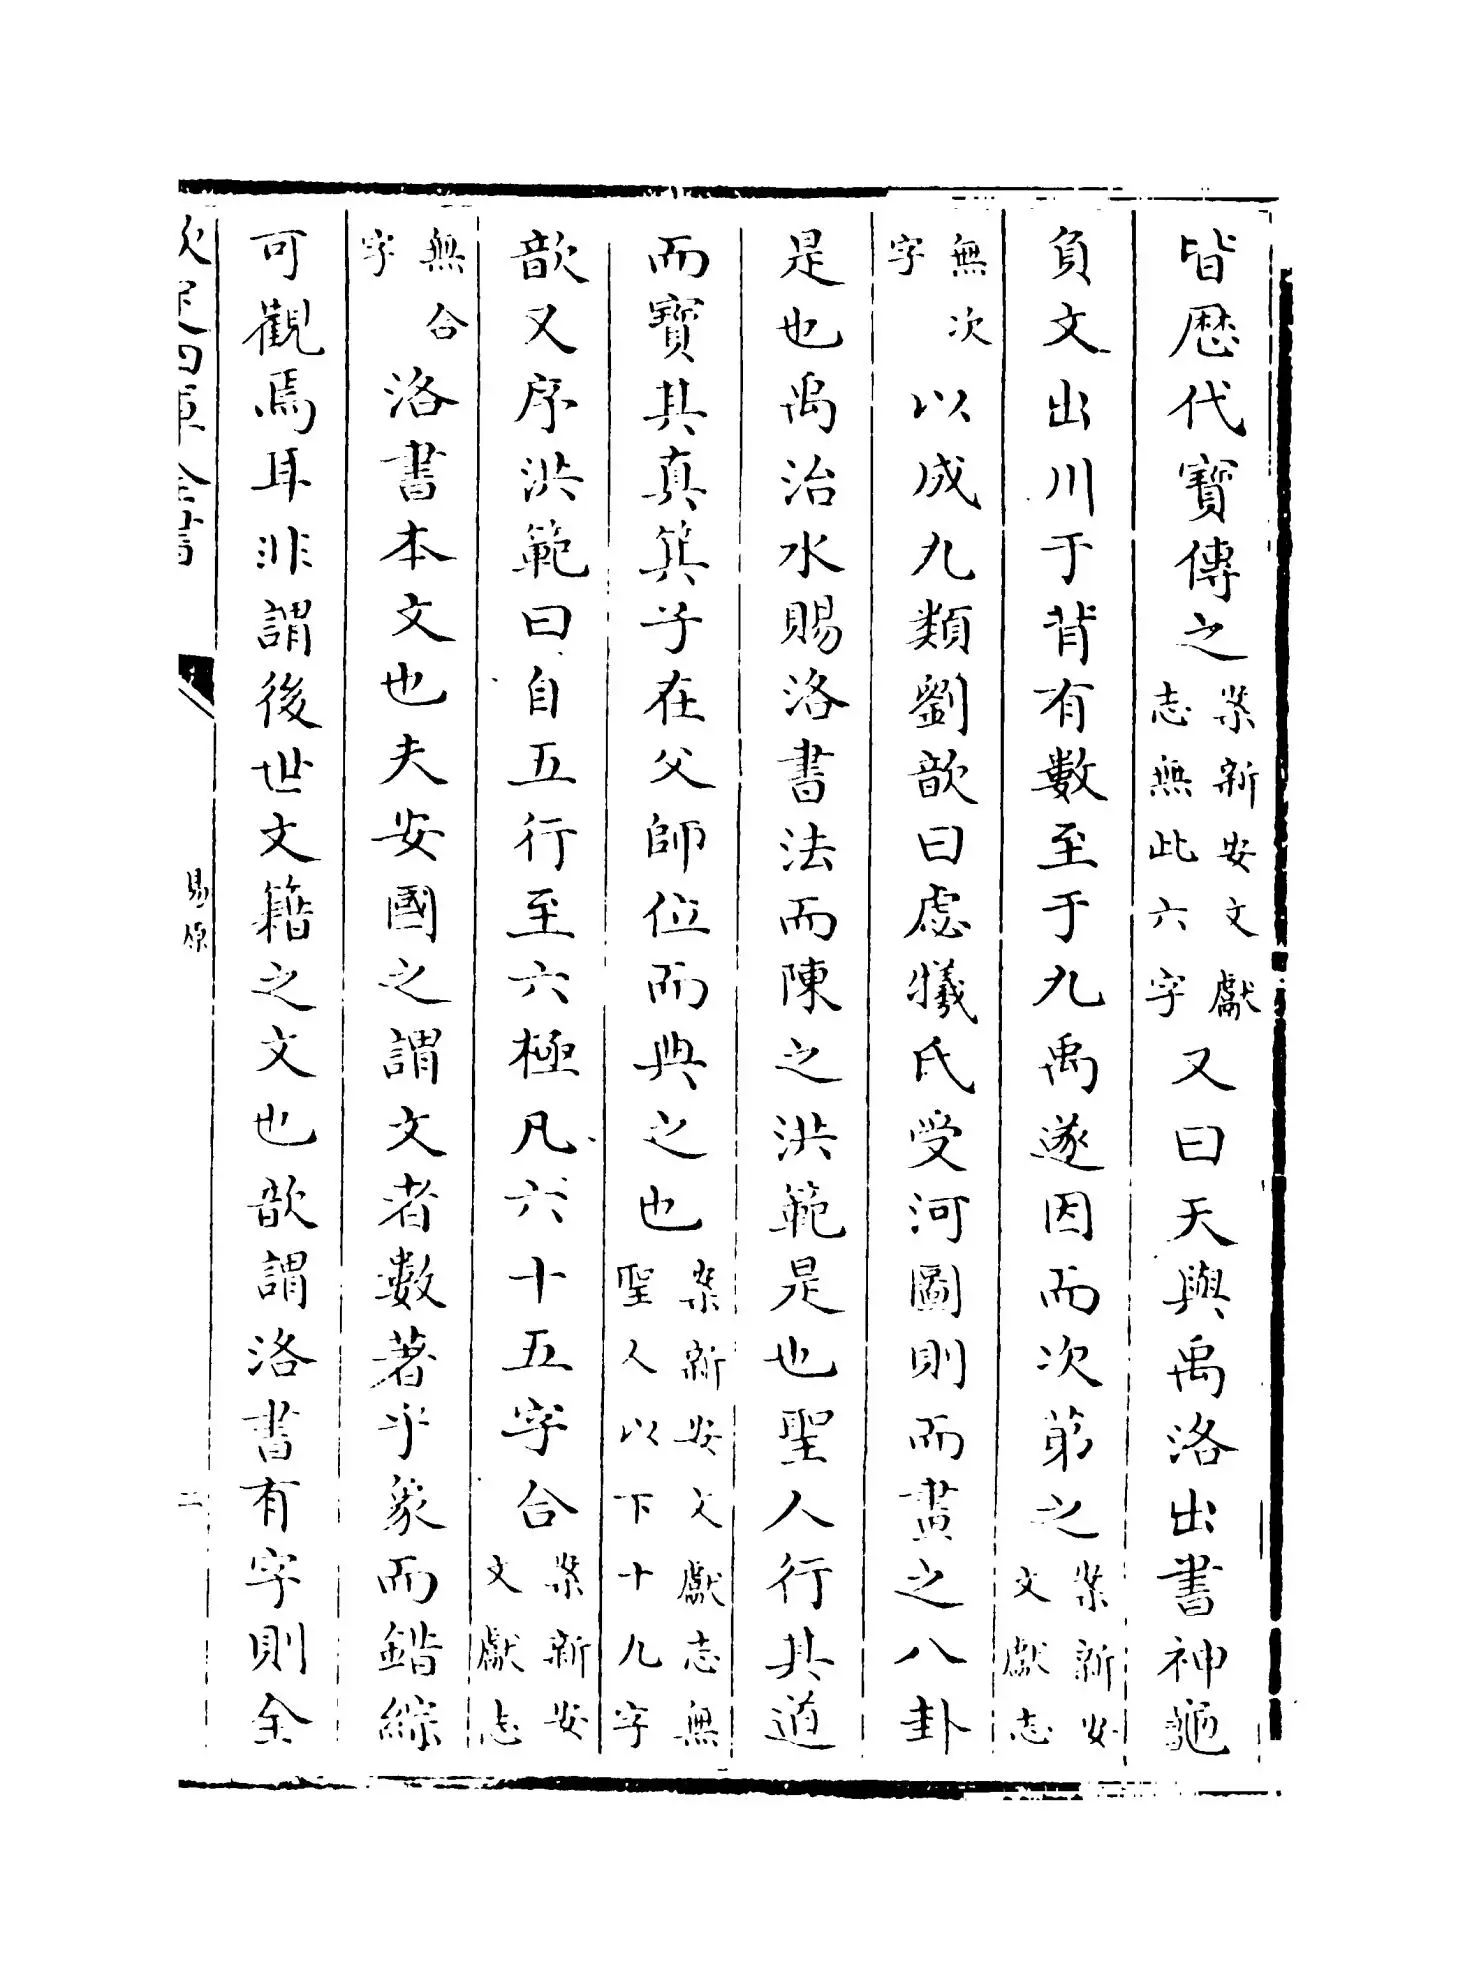 皆厯代寳傳之案新安文獻志無此六字又曰天與禹洛出書神龜
負文出川于背有數至于九禹遂因而次第之案新安文獻志
無次字以成九類劉歆曰虙犧氏受河圖則而畫之八卦
是也禹治水賜洛書法而陳之洪範是也聖人行其道
而寳其真箕子在父師位而典之也案新安文獻志無聖人以下十九字
歆又序洪範曰自五行至六極凡六十五字合案新安文獻志
無合字洛書本文也夫安國之謂文者數著乎象而錯綜
可觀焉耳非謂後世文籍之文也歆謂洛書有字則全
欽定四庫全書
易原
二